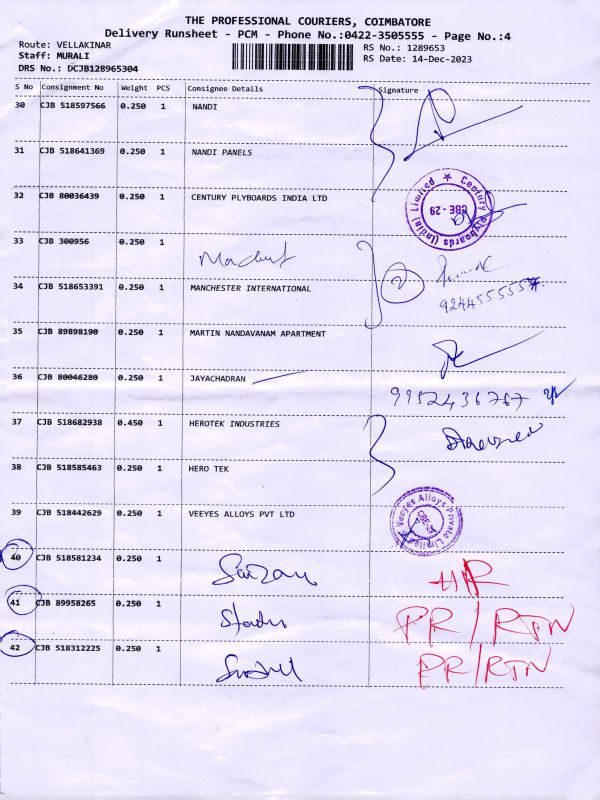 THE PROFESSIONAL COURIERS, COIMBATORE
Delivery Runsheet - PCM - Phone No.:0422-3505555 - Page No.:4
Route: VELLAKINAR RS No.: 1289653
Staff: MURALI RS Date: 14-Dec-2023
DRS No.: DCJB128965304
S No Consignment No Weight PCS Consignee Details Signature
30 CJB 518597566 0.250 1 NANDI
31 CJB 518641369 0.250 1 NANDI PANELS
32 CJB 80036439 0.250 1 CENTURY PLYBOARDS INDIA LTD
Century Plyboards (India) Limited ★ CBE - 29
33 CJB 300956 0.250 1
34 CJB 518653391 0.250 1 MANCHESTER INTERNATIONAL
2
35 CJB 89898190 0.250 1 MARTIN NANDAVANAM APARTMENT
36 CJB 80046280 0.250 1 JAYACHADRAN
9952436767
37 CJB 518682938 0.450 1 HEROTEK INDUSTRIES
38 CJB 518585463 0.250 1 HERO TEK
39 CJB 518442629 0.250 1 VEEYES ALLOYS PVT LTD
Veeyes Alloys Private Limited
40 CJB 518581234 0.250 1
41 CJB 89958265 0.250 1 PR/RTN
42 CJB 518312225 0.250 1 PR/RTN